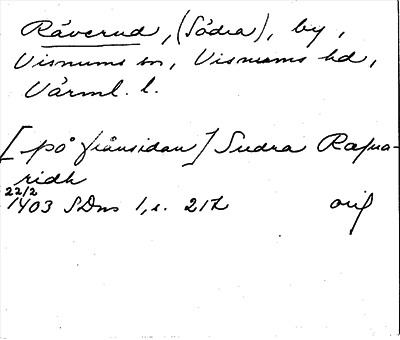 Råverud, (Södra), by,
Visnums sn, Visnums hd,
Värml. l.
[på frånsidan] Sudra Rafua-
ridh
22/2
1403 SDns 1, s. 217 orig